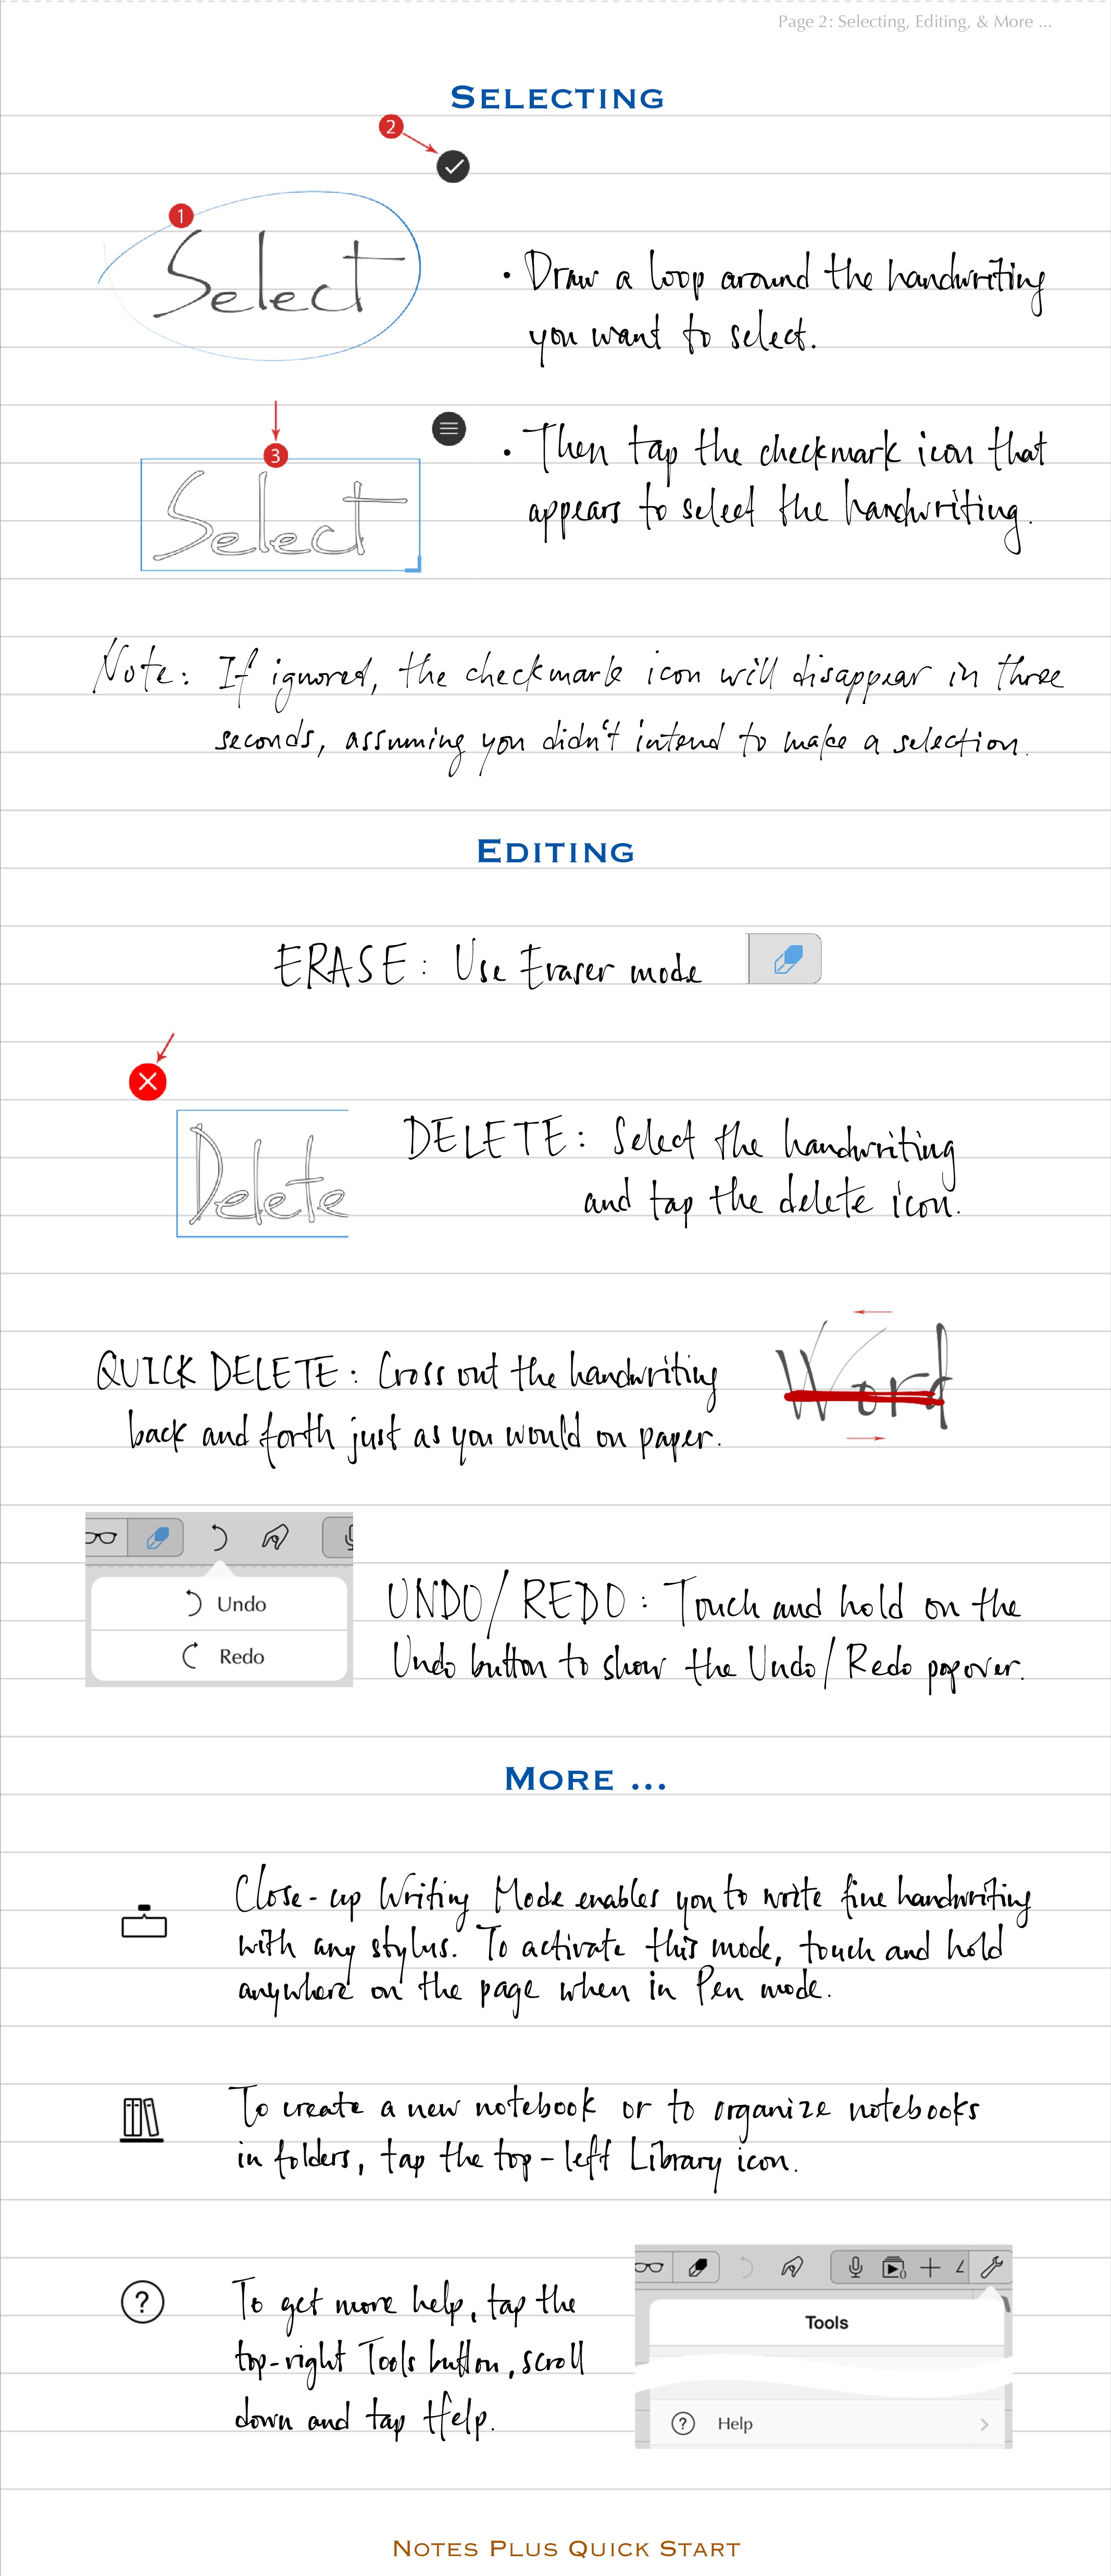 Page 2: Selecting, Editing, & More ...
SELECTING
2
1
Select
• Draw a loop around the handwriting
you want to select.
3
Select
• Then tap the checkmark icon that
appears to select the handwriting.
Note: If ignored, the checkmark icon will disappear in three
seconds, assuming you didn't intend to make a selection.
EDITING
ERASE: Use Eraser mode
Delete
DELETE: Select the handwriting
and tap the delete icon.
QUICK DELETE: Cross out the handwriting
back and forth just as you would on paper.
Word
Undo
Redo
UNDO/REDO: Touch and hold on the
Undo button to show the Undo/Redo popover.
MORE ...
Close-up Writing Mode enables you to write fine handwriting
with any stylus. To activate this mode, touch and hold
anywhere on the page when in Pen mode.
To create a new notebook or to organize notebooks
in folders, tap the top-left Library icon.
?
To get more help, tap the
top-right Tools button, scroll
down and tap Help.
0
Tools
? Help
NOTES PLUS QUICK START